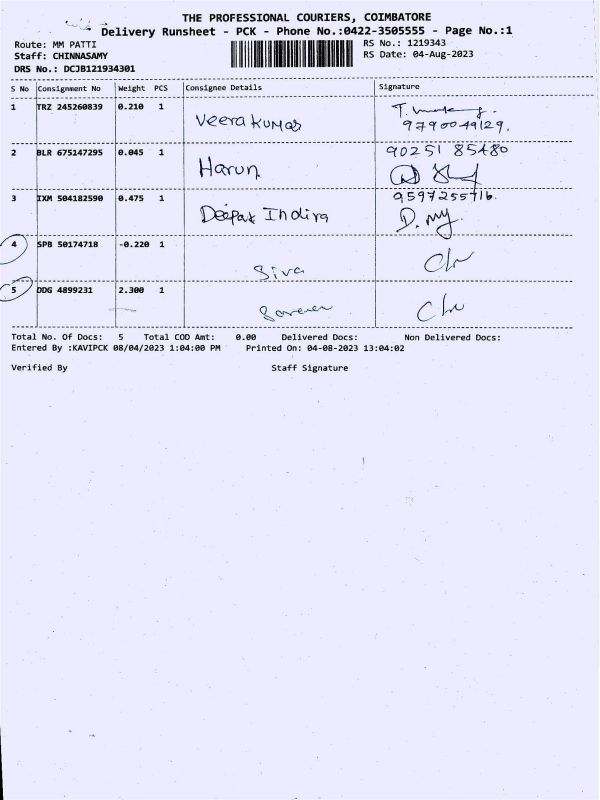 THE PROFESSIONAL COURIERS, COIMBATORE
Delivery Runsheet - PCK - Phone No.:0422-3505555 - Page No.:1
Route: MM PATTI
RS No.: 1219343
Staff: CHINNASAMY
RS Date: 04-Aug-2023
DRS No.: DCJB121934301
S No Consignment No Weight PCS Consignee Details Signature
1 TRZ 245260839 0.210 1 Veerakumar
9790049129.
2 BLR 675147295 0.045 1 Harun 90251 85480
3 IXM 504182590 0.475 1 Deepak Indira 9597255716.
4 SPB 50174718 -0.220 1 Siva
5 DDG 4899231 2.300 1
Total No. Of Docs: 5 Total COD Amt: 0.00 Delivered Docs: Non Delivered Docs:
Entered By :KAVIPCK 08/04/2023 1:04:00 PM Printed On: 04-08-2023 13:04:02
Verified By Staff Signature